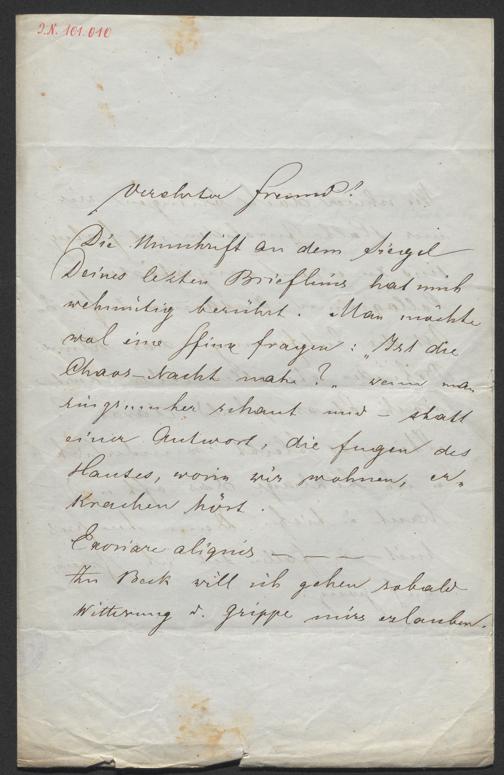 I.N. 101.010
Verehrter Freund!
Die Umschrift an dem Siegel
Deines letzten Briefleins hat mich
wehmütig berührt. Man möchte
wol eine Sfinx fragen: „Ist die
Chaos-Nacht nahe?„ wenn man
ringsumher schaut und – statt
einer Antwort, die Fugen des
Hauses, worin wir wohnen, er„
krachen hört.
Exoriare aliquis – – –
Zu Beck will ich gehen sobald
Witterung u. Grippe mirs erlauben.